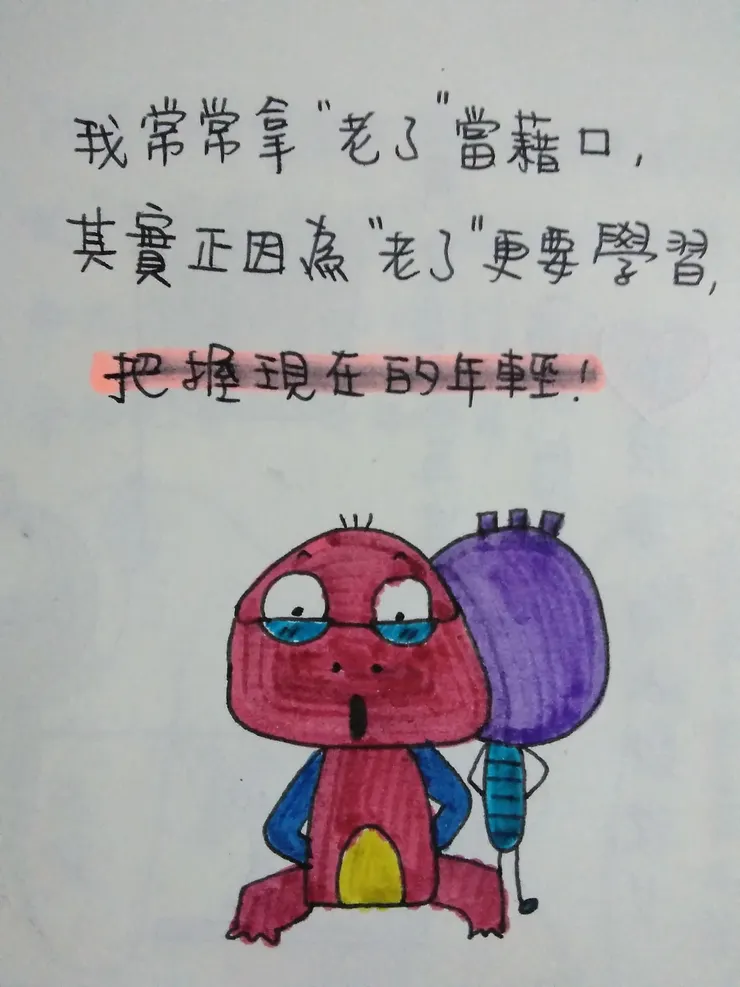 我常常拿"老了"當藉口,
其實正因為"老了"更要學習,
把握現在的年輕!